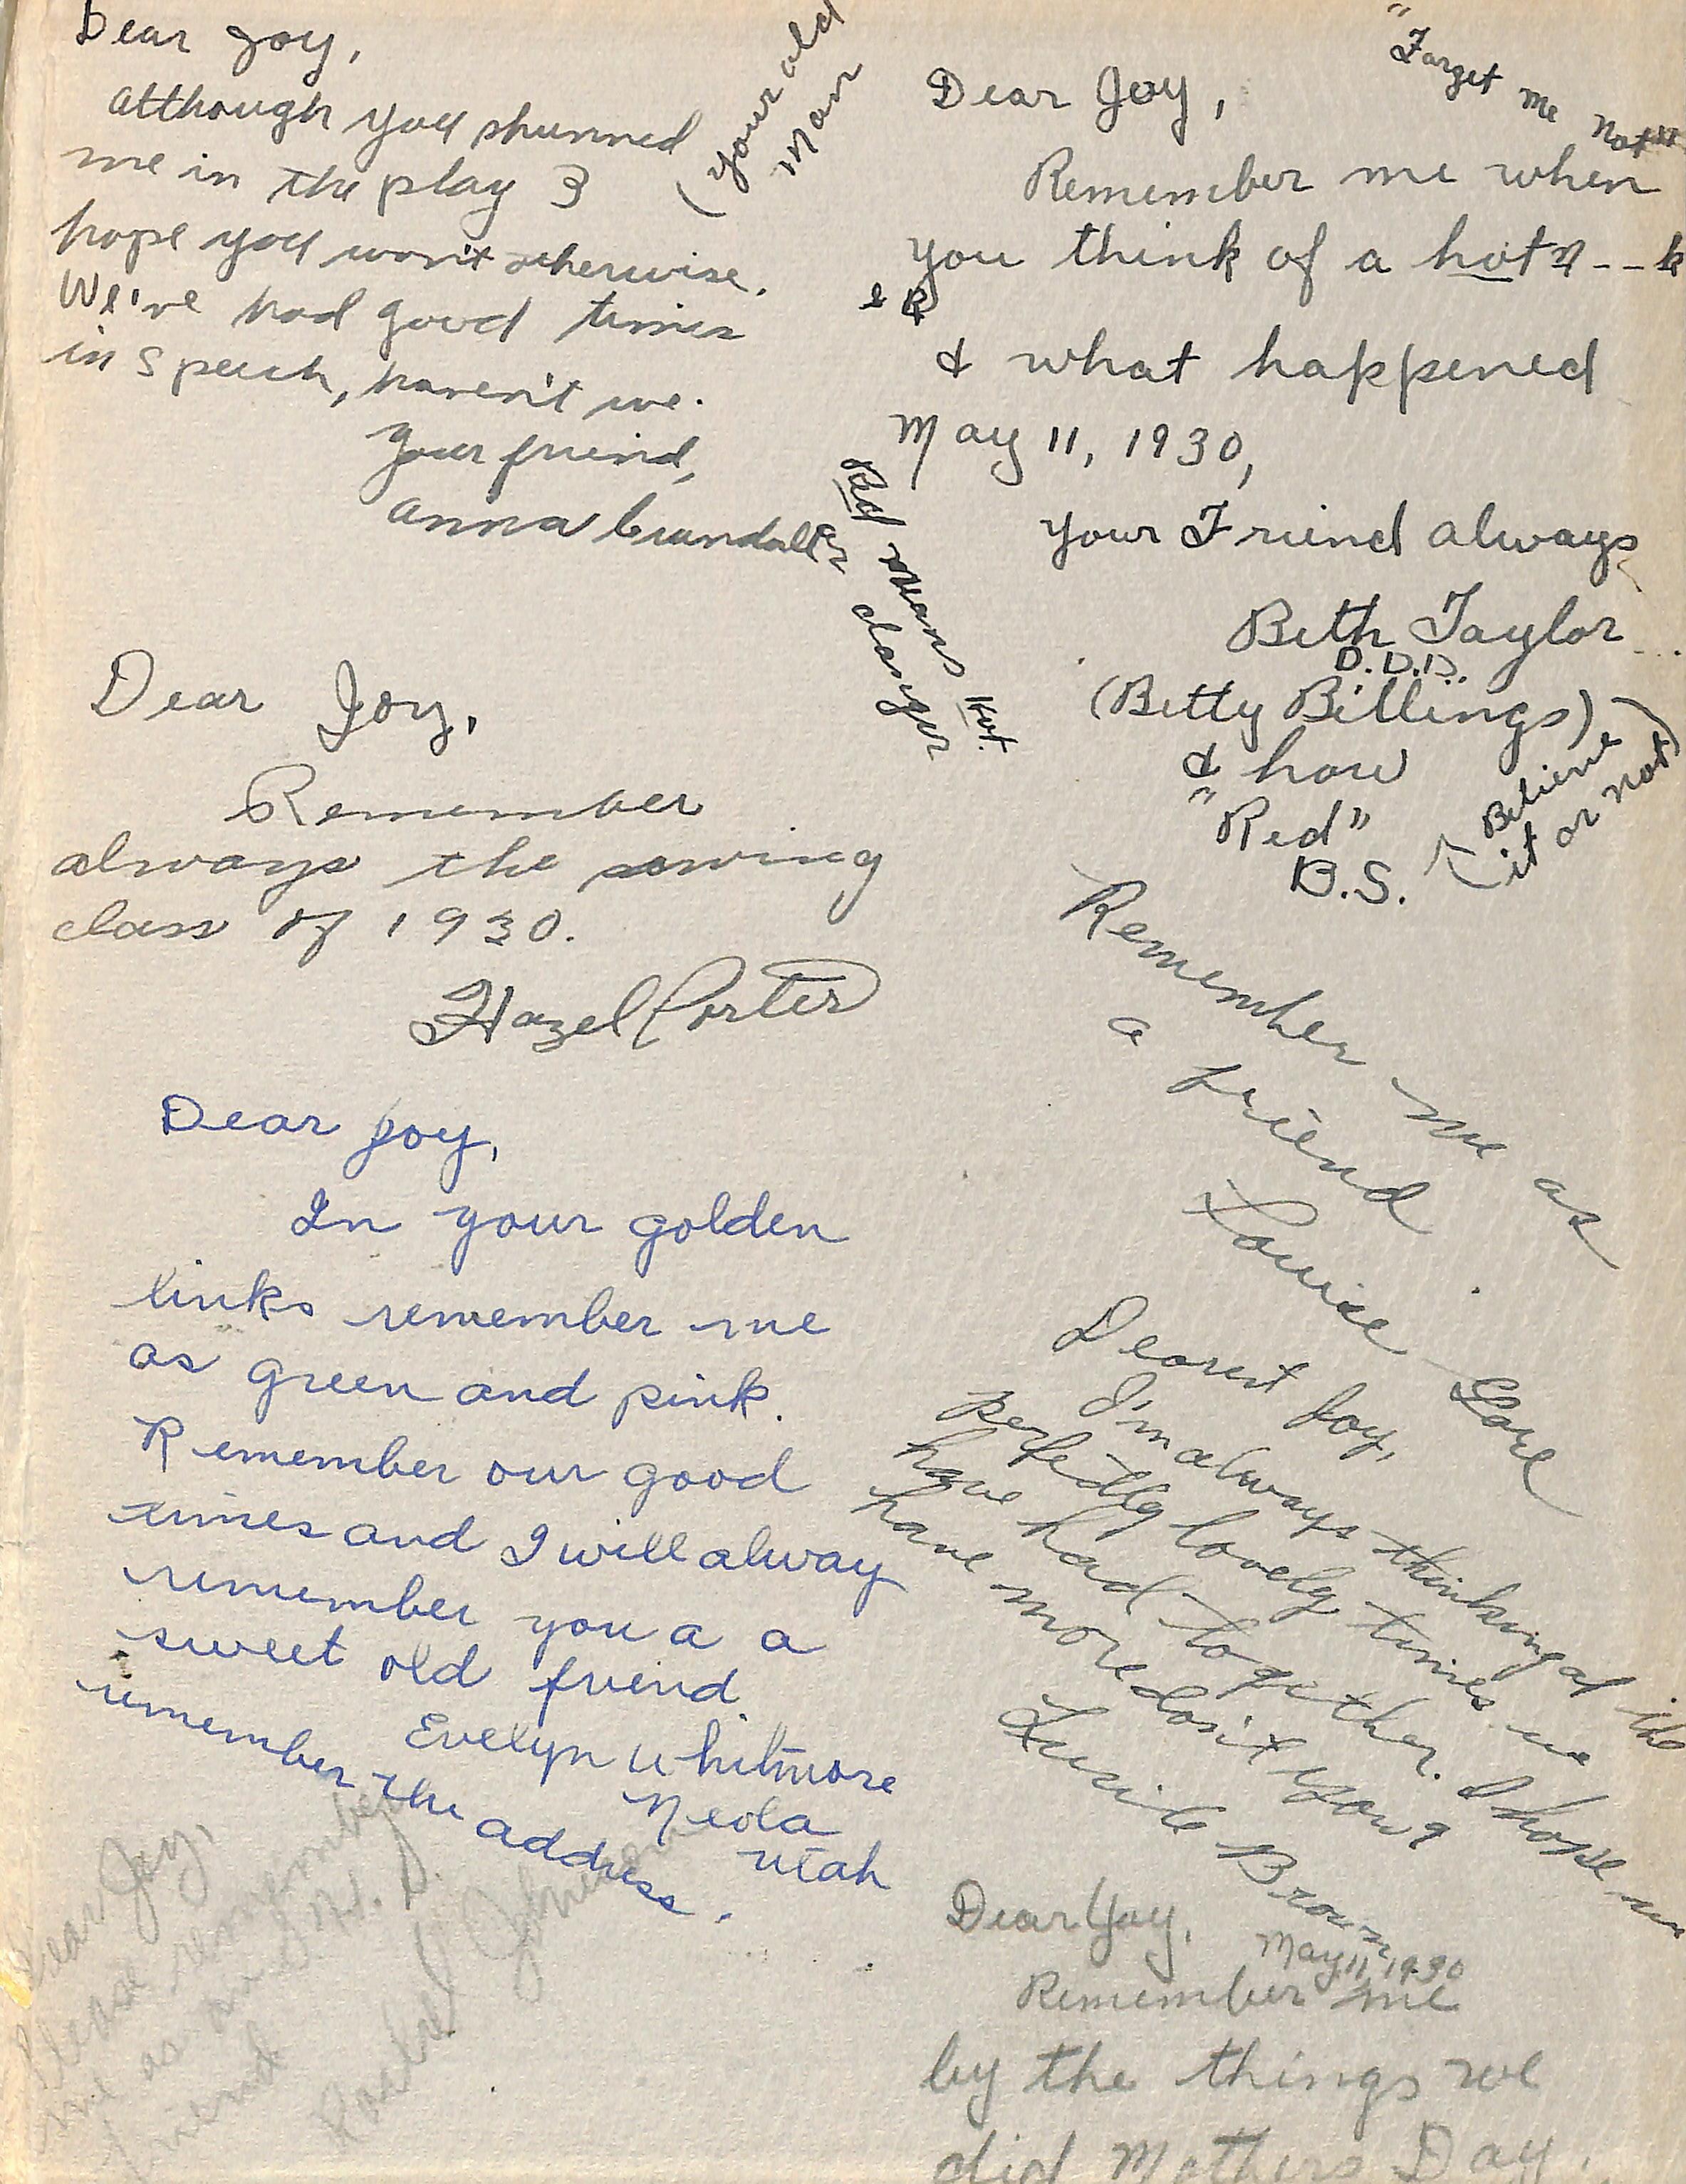 Dear Joy,
Although you shunned
me in the play I
hope you won't otherwise.
We've had good times
in Speech, haven't we.
Your friend,
Anna Crandall
(your old
man
Dear Joy,
Remember
always the sewing
class of 1930.
Hazel Porter
Dear Joy,
In your golden
links remember me
as green and pink.
Remember our good
times and I will alway
remember you a a
sweet old friend.
Evelyn Whitmore
Neola
Utah
remember the address.
Dear Joy,
Please remember
me as an J. H. S.
friend
Rachel Johnson
"Forget me not"
Dear Joy,
Remember me when
you think of a hot n--k
& R
& what happened
May 11, 1930,
Your Friend always
Beth Taylor
D.D.D.
(Betty Billings)
& how
"Red"
B.S.
(Believe
it or not)
Red means hot
or danger
Remember me as
a friend
Louise Lore
Dearest Joy,
I'm always thinking of the
perfectly lovely times we
have had together. I hope we
have more don't you?
Lucile Brown
Dear Yoy,
May 11, 1930
Remember me
by the things we
did Mothers Day.